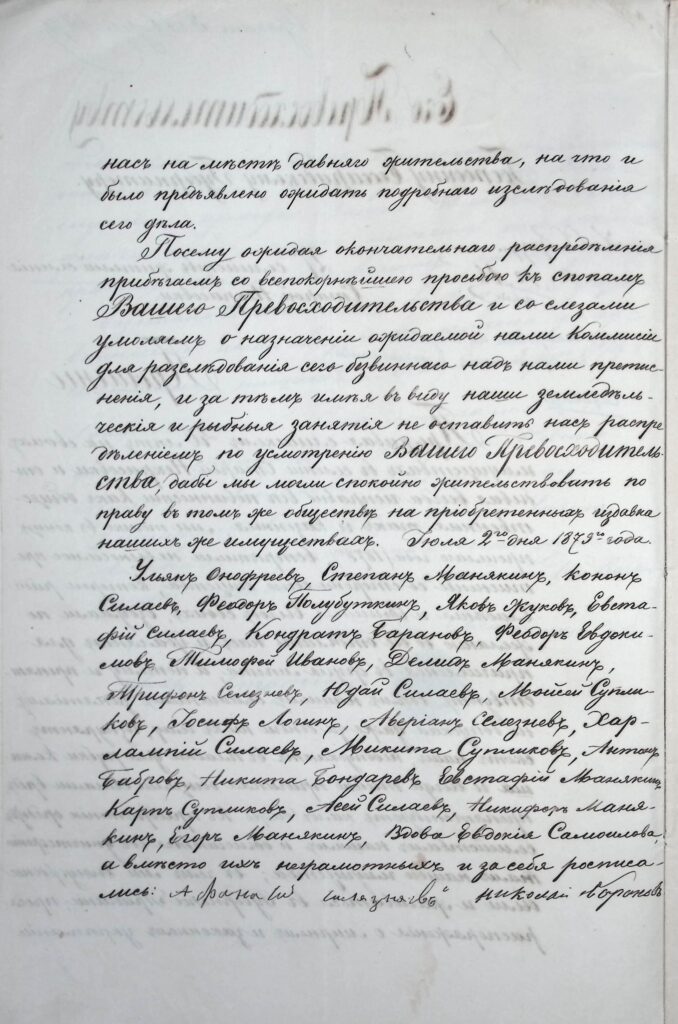 насъ на мѣстѣ давняго жительства, на что и
было предъявлено ожидать подробнаго изслѣдованія
сего дѣла.
Посему ожидая окончательнаго распредѣленія
прибѣгаемъ со всепокорнѣйшею просьбою къ стопамъ
Вашего Превосходительства и со слезами
умоляемъ о назначеніи ожидаемой нами Коммисіи
для разслѣдованія сего безвиннаго надъ нами притис-
ненія, и за тѣмъ имѣя въ виду наши земледѣль-
ческія и рыбныя занятія не оставить насъ распре
дѣленіемъ по усмотрѣнію Вашего Превосходитель-
ства, дабы мы могли спокойно жительствовать по
праву въ томъ же обществѣ на пріобретенныхъ издавка
нашихъ же имуществахъ. Іюля 2го дня 1879го года.
Ульянъ Онофреевъ, Степанъ Манякинъ, Кононъ
Силаевъ, Феодоръ Полубуткинъ, Яковъ Жуковъ, Евста-
фій Силаевъ, Кондратъ Барановъ, Феодоръ Евдоки-
мовъ Тимофей Ивановъ, Делидъ Манякинъ,
Трифонъ Селезневъ, Юдай Силаевъ, Моисей Супли-
ковъ, Іосифъ Логинъ, Аверіанъ Селезневъ, Хар-
лампій Силаевъ, Микита Супликовъ, Антонъ
Бабровъ, Никита Бондаревъ Евстафій Манякинъ
Карпъ Супликовъ, Асей Силаевъ, Никифоръ Маня-
кинъ, Егоръ Манякинъ, Вдова Евдокія Самоилова,
а вмѣсто ихъ неграмотныхъ и за себя росписа-
лись: Афанасій силязневъ николай бороновъ